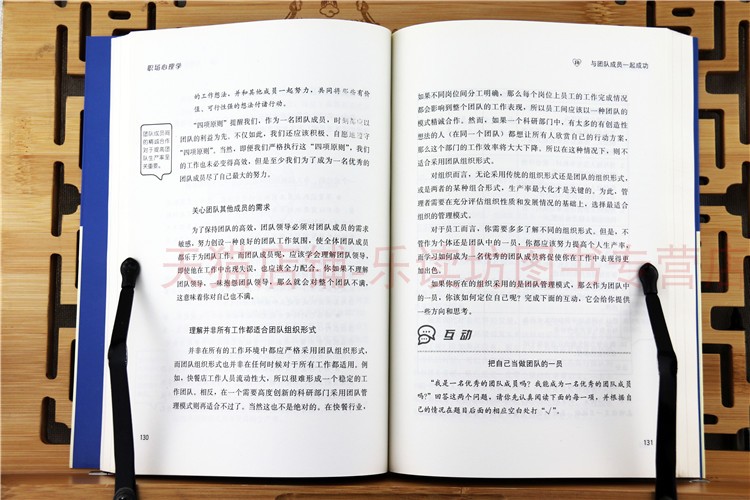 职场心理学
的工作想法，并和其他成员一起努力，共同将那些有价
值、可行性强的想法付诸行动。
“四项原则”提醒我们，作为一名团队成员，时刻都应以
团队的利益为先。不仅如此，我们还应该积极、自愿地遵守
“四项原则”。当然，即便我们严格执行这“四项原则”，我们
的工作也未必变得高效，但是至少我们为了成为一名优秀的
团队成员尽了自己最大的努力。
团队成员间
的精诚合作
对于提高团
队生产率至
关重要。
关心团队其他成员的需求
为了保持团队的高效，团队领导必须对团队成员的需求
敏感，努力创设一种良好的团队工作氛围，使全体团队成员
都乐于为团队工作。而团队成员呢，应该学会理解团队领导，
即使他在工作中出现失误，也应该全力配合。你如果不理解
团队领导，一味抱怨团队领导，那么就会对整个团队不满，
这意味着你对自己也不满。
理解并非所有工作都适合团队组织形式
并非在所有的工作环境中都应严格采用团队组织形式，
而团队组织形式也并非在任何时候对于所有工作都适用。例
如，快餐店工作人员流动性大，所以很难形成一个稳定的工
作团队。相反，在一个需要高度创新的科研部门采用团队管
理模式则再适合不过了。当然这也不是绝对的。在快餐行业，
130
与团队成员一起成功
如果不同岗位间分工明确，那么每个岗位上员工的工作完成情况
都会影响到整个团队的工作表现，所以员工间应该以一种团队的
模式精诚合作。然而，如果一个科研部门中，有太多的有创造性
想法的人（在同一个团队）都想让所有人欣赏自己的行动方案，
那么这个部门的工作效率将大大下降。所以在这种情况下，则不
适合采用团队组织形式。
对组织而言，无论采用传统的组织形式还是团队的组织形式，
或是两者的某种组合形式，生产率最大化才是关键的。为此，管
理者需要在充分评估组织性质和发展情况的基础上，选择最适合
组织的管理模式。
对于员工而言，你需要多多了解不同的组织形式。但是，不
管作为个体还是团队中的一员，你都应该努力提高个人生产率，
而学习如何成为一名优秀的团队成员将促使你在工作中表现得更
加出色。
如果你所在的组织采用的是团队管理模式，那么作为团队中
的一员，你该如何定位自己呢？完成下面的互动，它会给你提供
一些方向和思考。
互动
把自己当做团队的一员
“我是一名优秀的团队成员吗？我能成为一名优秀的团队成员
吗？”回答这两个问题，请你先认真阅读下面的每一项，并根据自
己的情况在题目后面的相应空白处打“√”。
131
天猫店铺:乐读坊图书专营店